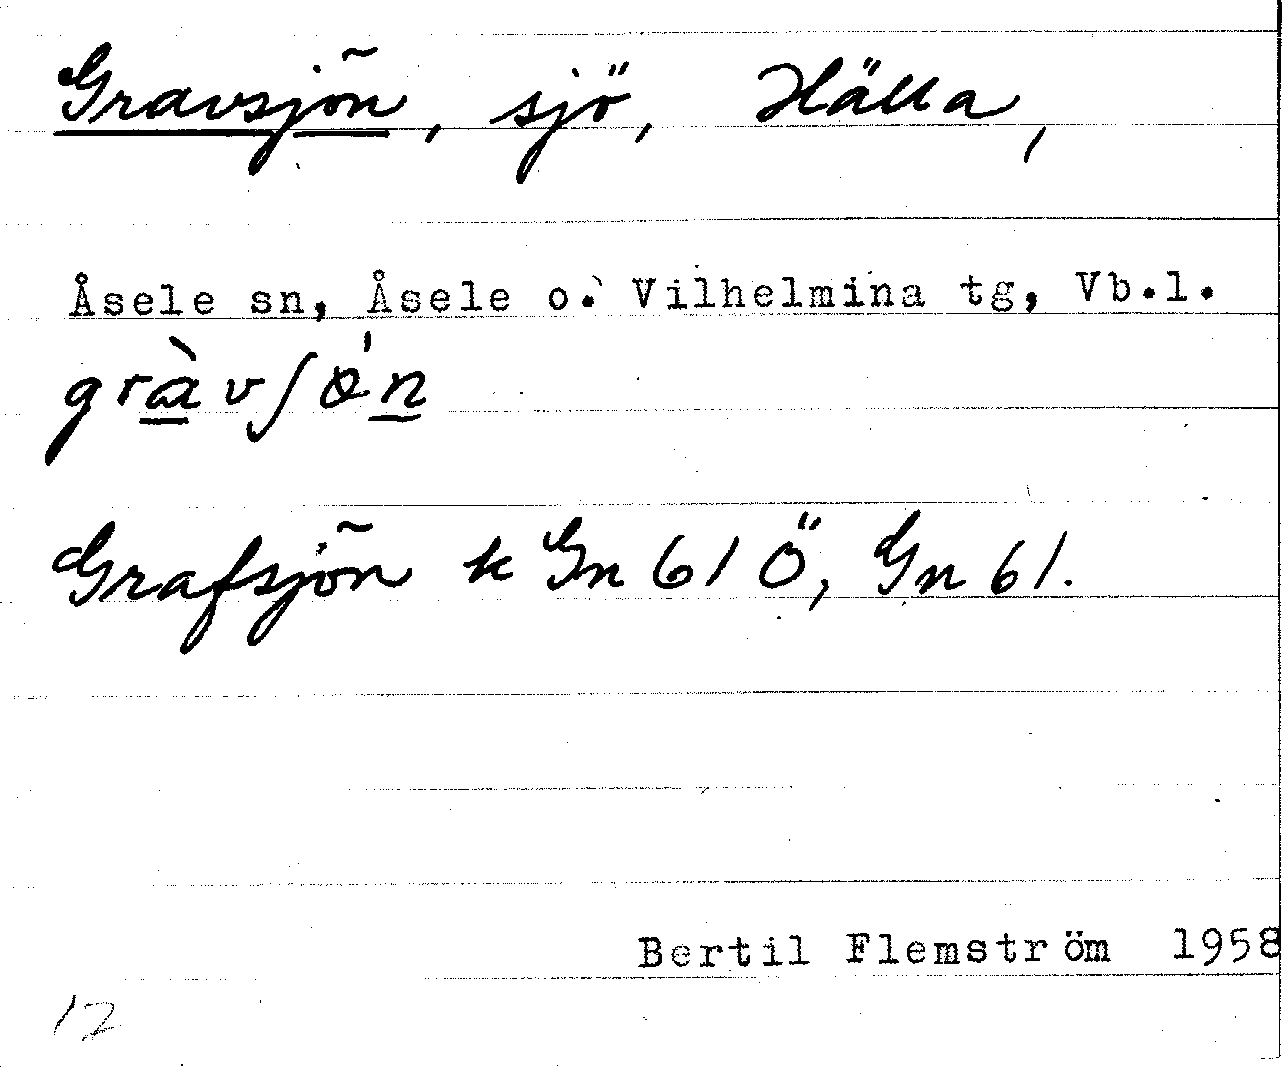 Gravsjön, sjö, Hälla,
Åsele sn, Åsele o. Vilhelmina tg, Vb.l.
gràvʃǿn
Grafsjön k Gn 61 Ö, Gn 61.
Bertil Flemström 1958
12